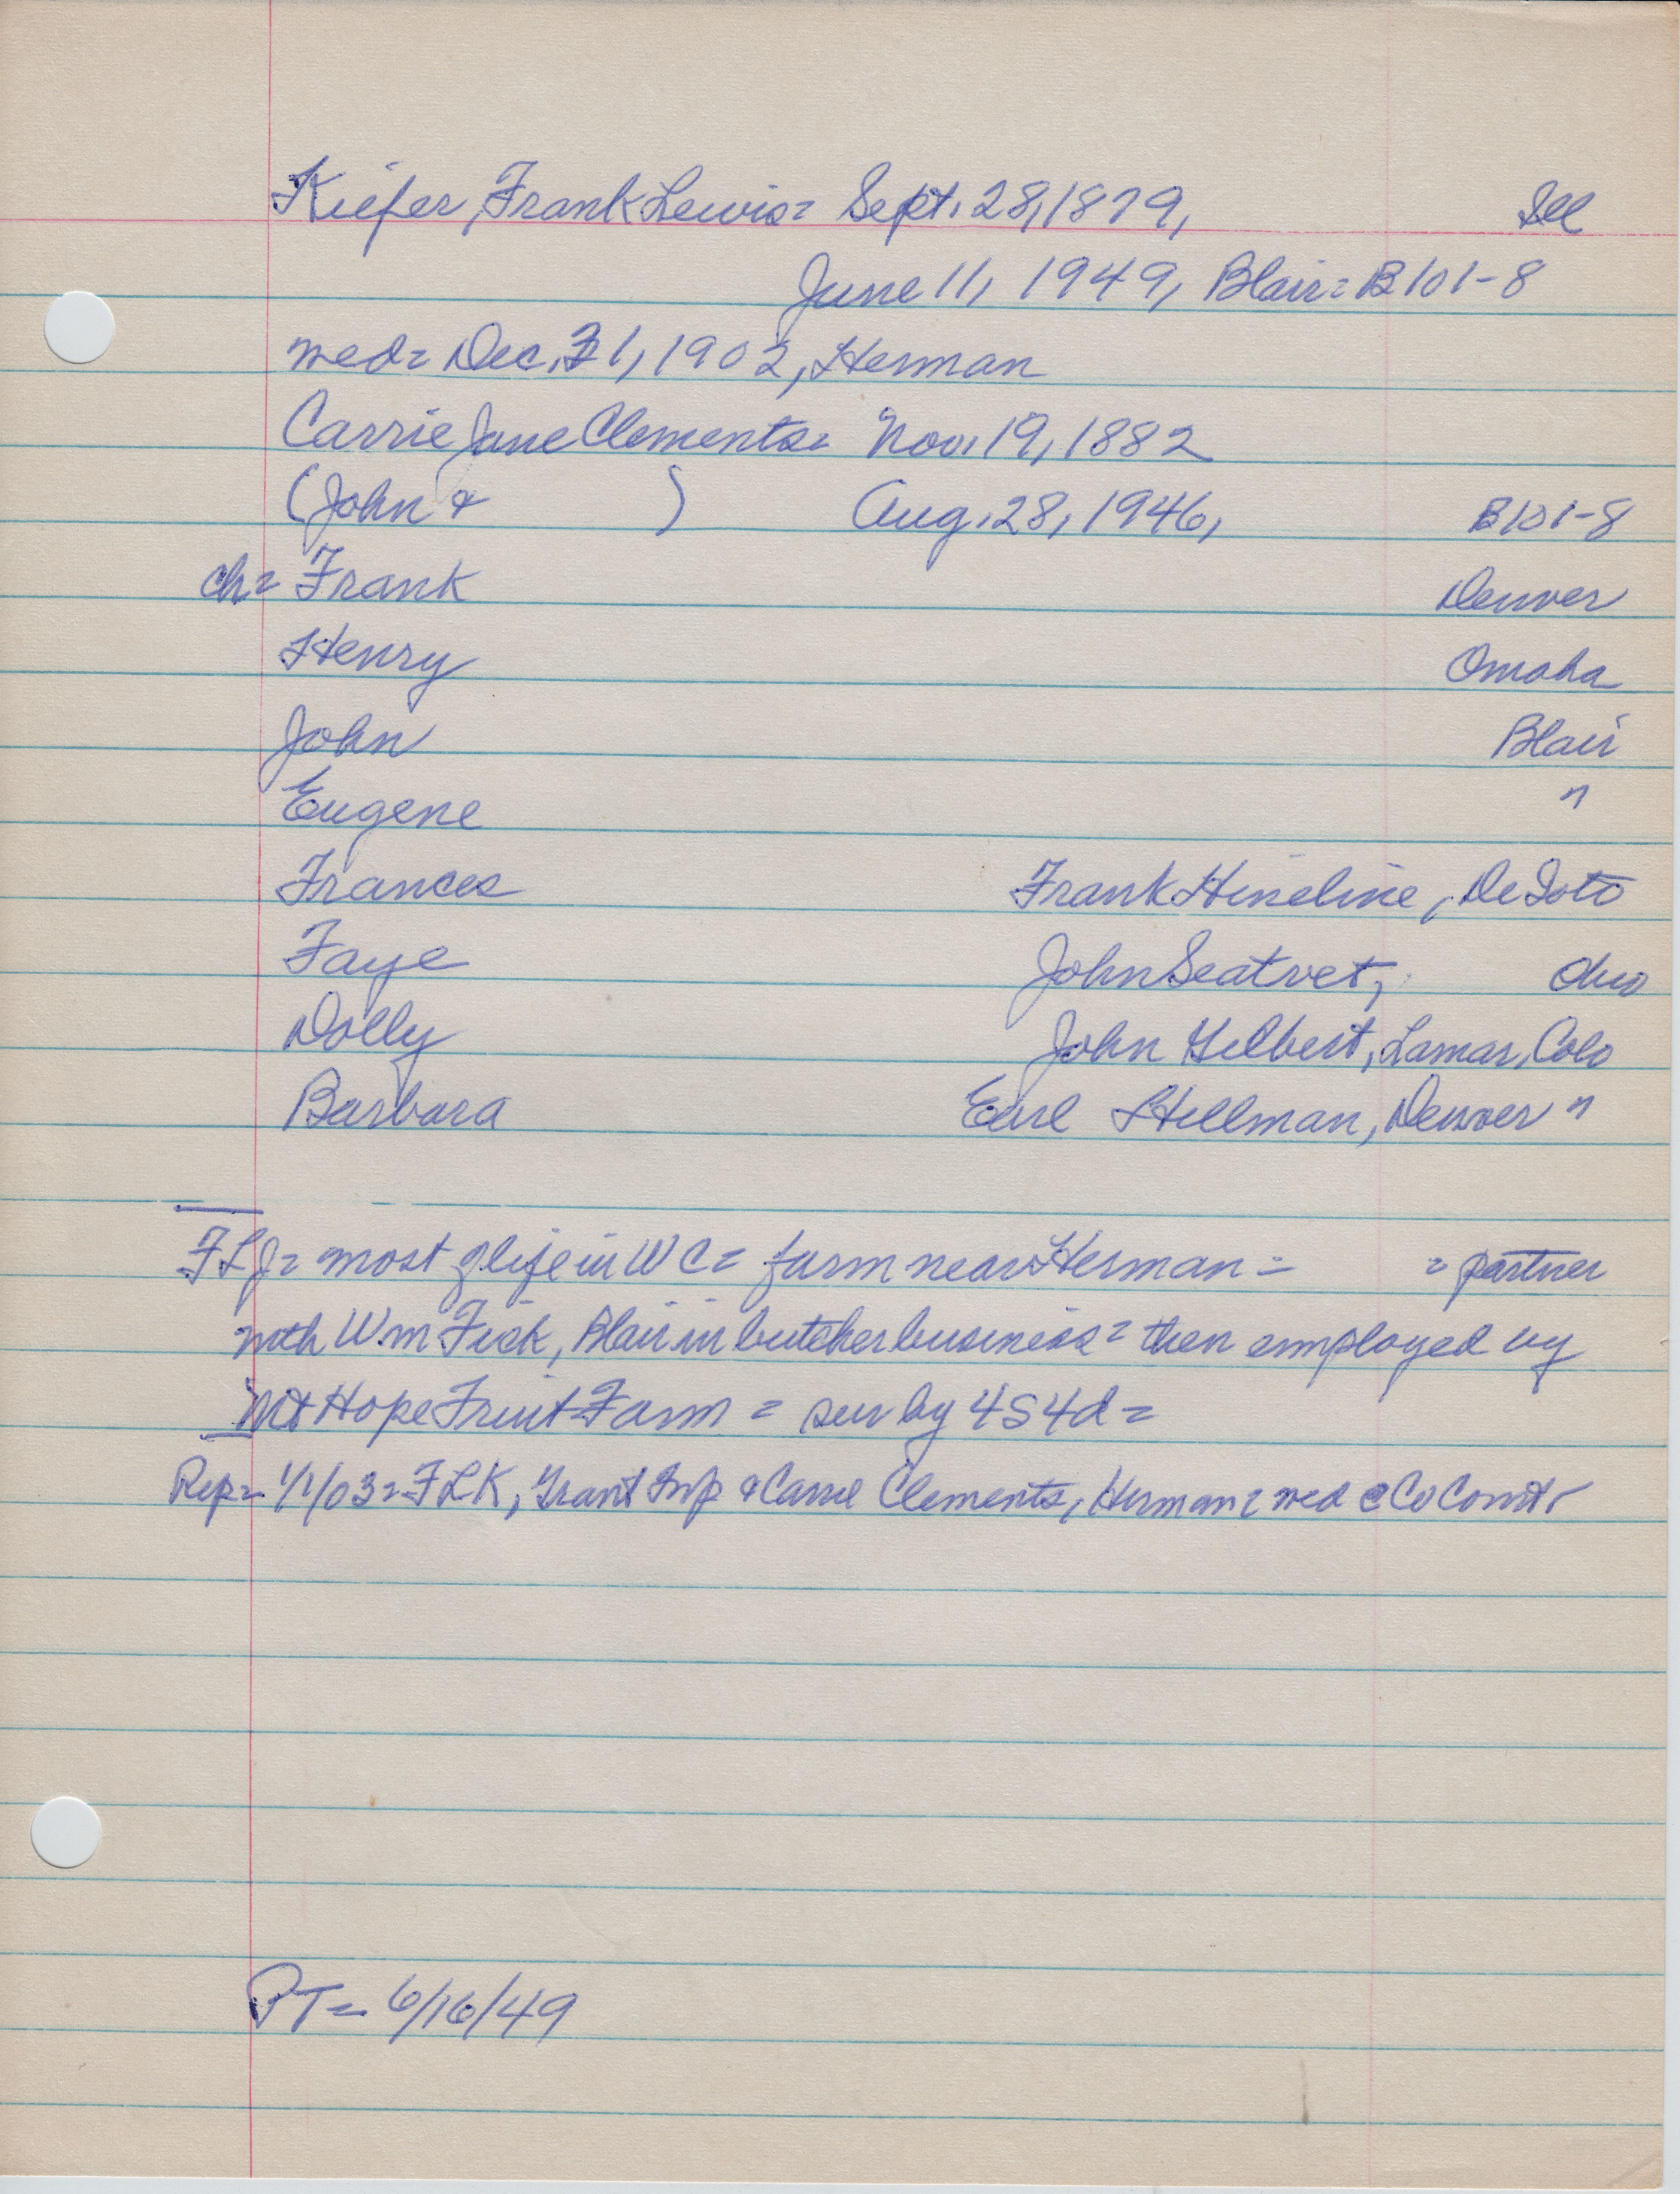 Kiefer, Frank Lewis= Sept. 28, 1879, Ill
June 11, 1949, Blair= B101-8
wed= Dec. 31, 1902, Herman
Carrie Jane Clements= Nov. 19, 1882
(John & ) Aug. 28, 1946, B101-8
ch= Frank Denver
Henry Omaha
John Blair
Eugene "
Frances Frank Hineline, De Soto
Faye John Seatvet,
Dolly John Gilbert, Lamar, Colo
Barbara Earl Hillman, Denver "
= most of life in WC= farm near Herman = = partner
with Wm Fick, Blair in butcher business= then employed by
Mt Hope Fruit Farm = sur by 4S 4d=
Rep= 1/1/03= FLK, Grant Twp & Carrie Clements, Herman= wed @ Co
PT= 6/16/49